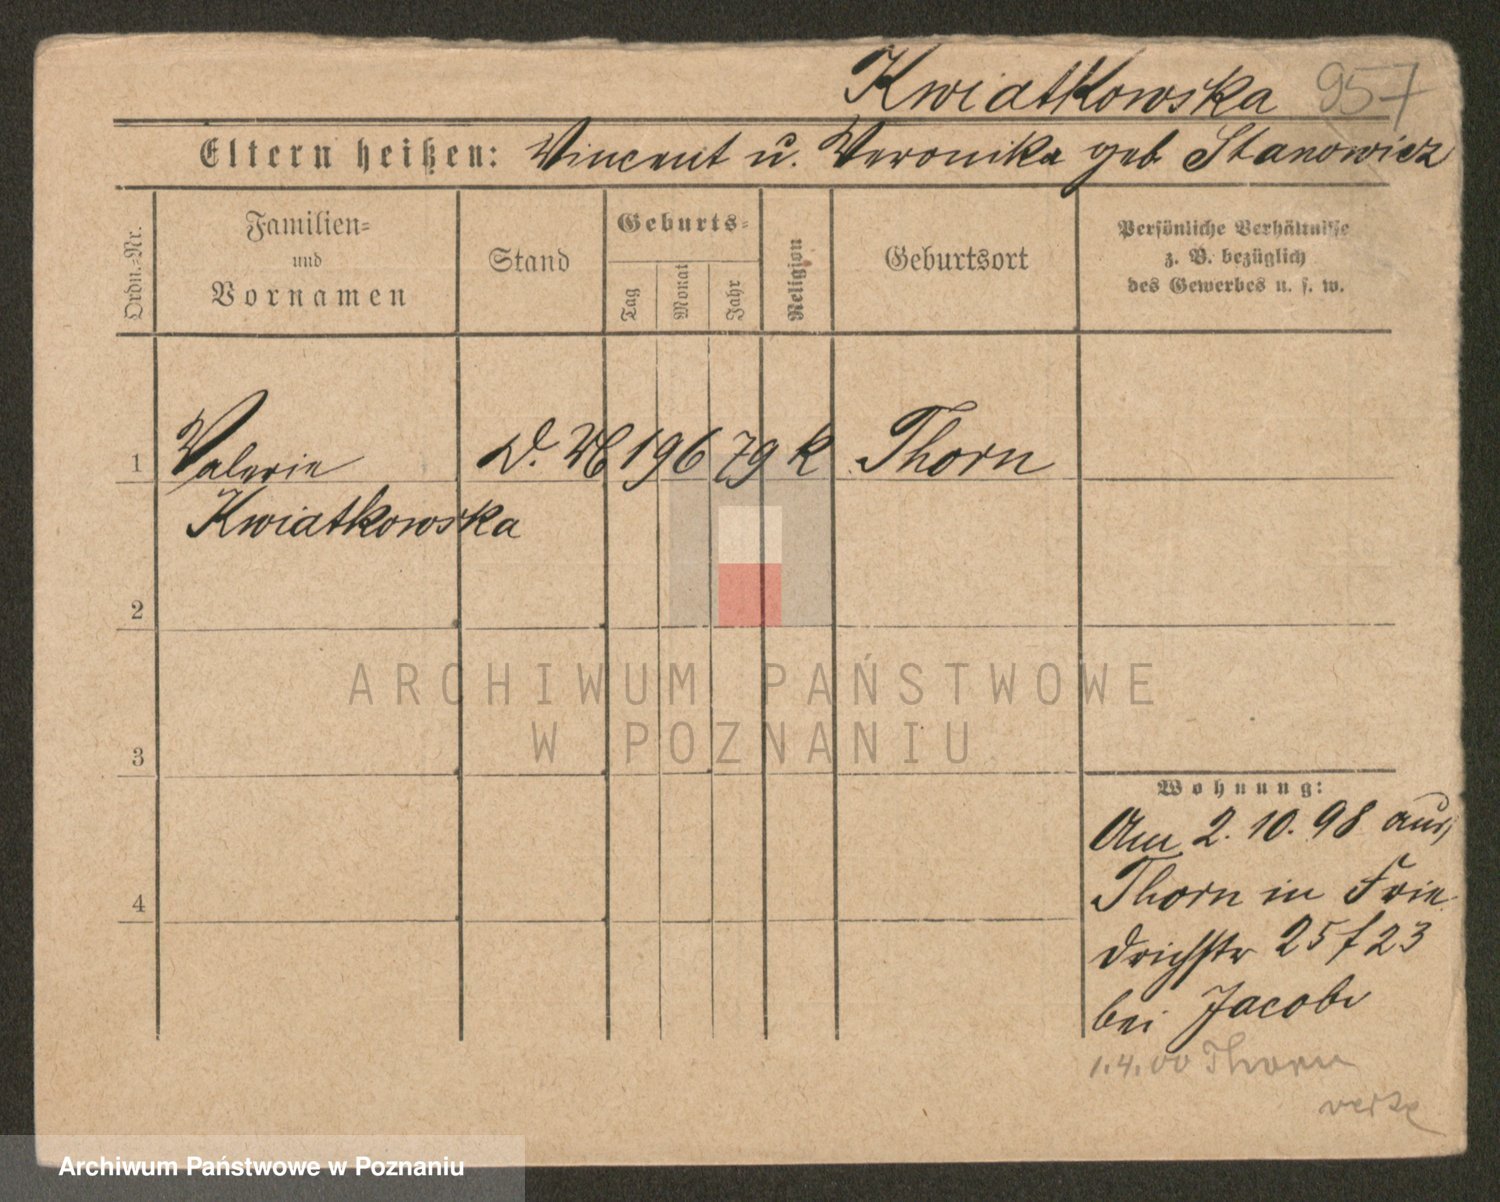 Kwiatkowska 957
Eltern heißen: Vincent u. Veronika geb Stanowicz
Ordn.-Nr.
Familien-
und
Vornamen
Stand
Geburts-
Tag
Monat
Jahr
Religion
Geburtsort
Persönliche Verhältnisse
z. B. bezüglich
des Gewerbes u. s. w.
1 Valerie D. 19 6 79 k Thorn
Kwiatkowska
2
3
4
ARCHIWUM PAŃSTWOWE
W POZNANIU
Wohnung:
Am 2.10.98 aus
Thorn in Frie
drichstr 25 f 23
bei Jacobi
1.4.00 Thorn
Archiwum Państwowe w Poznaniu